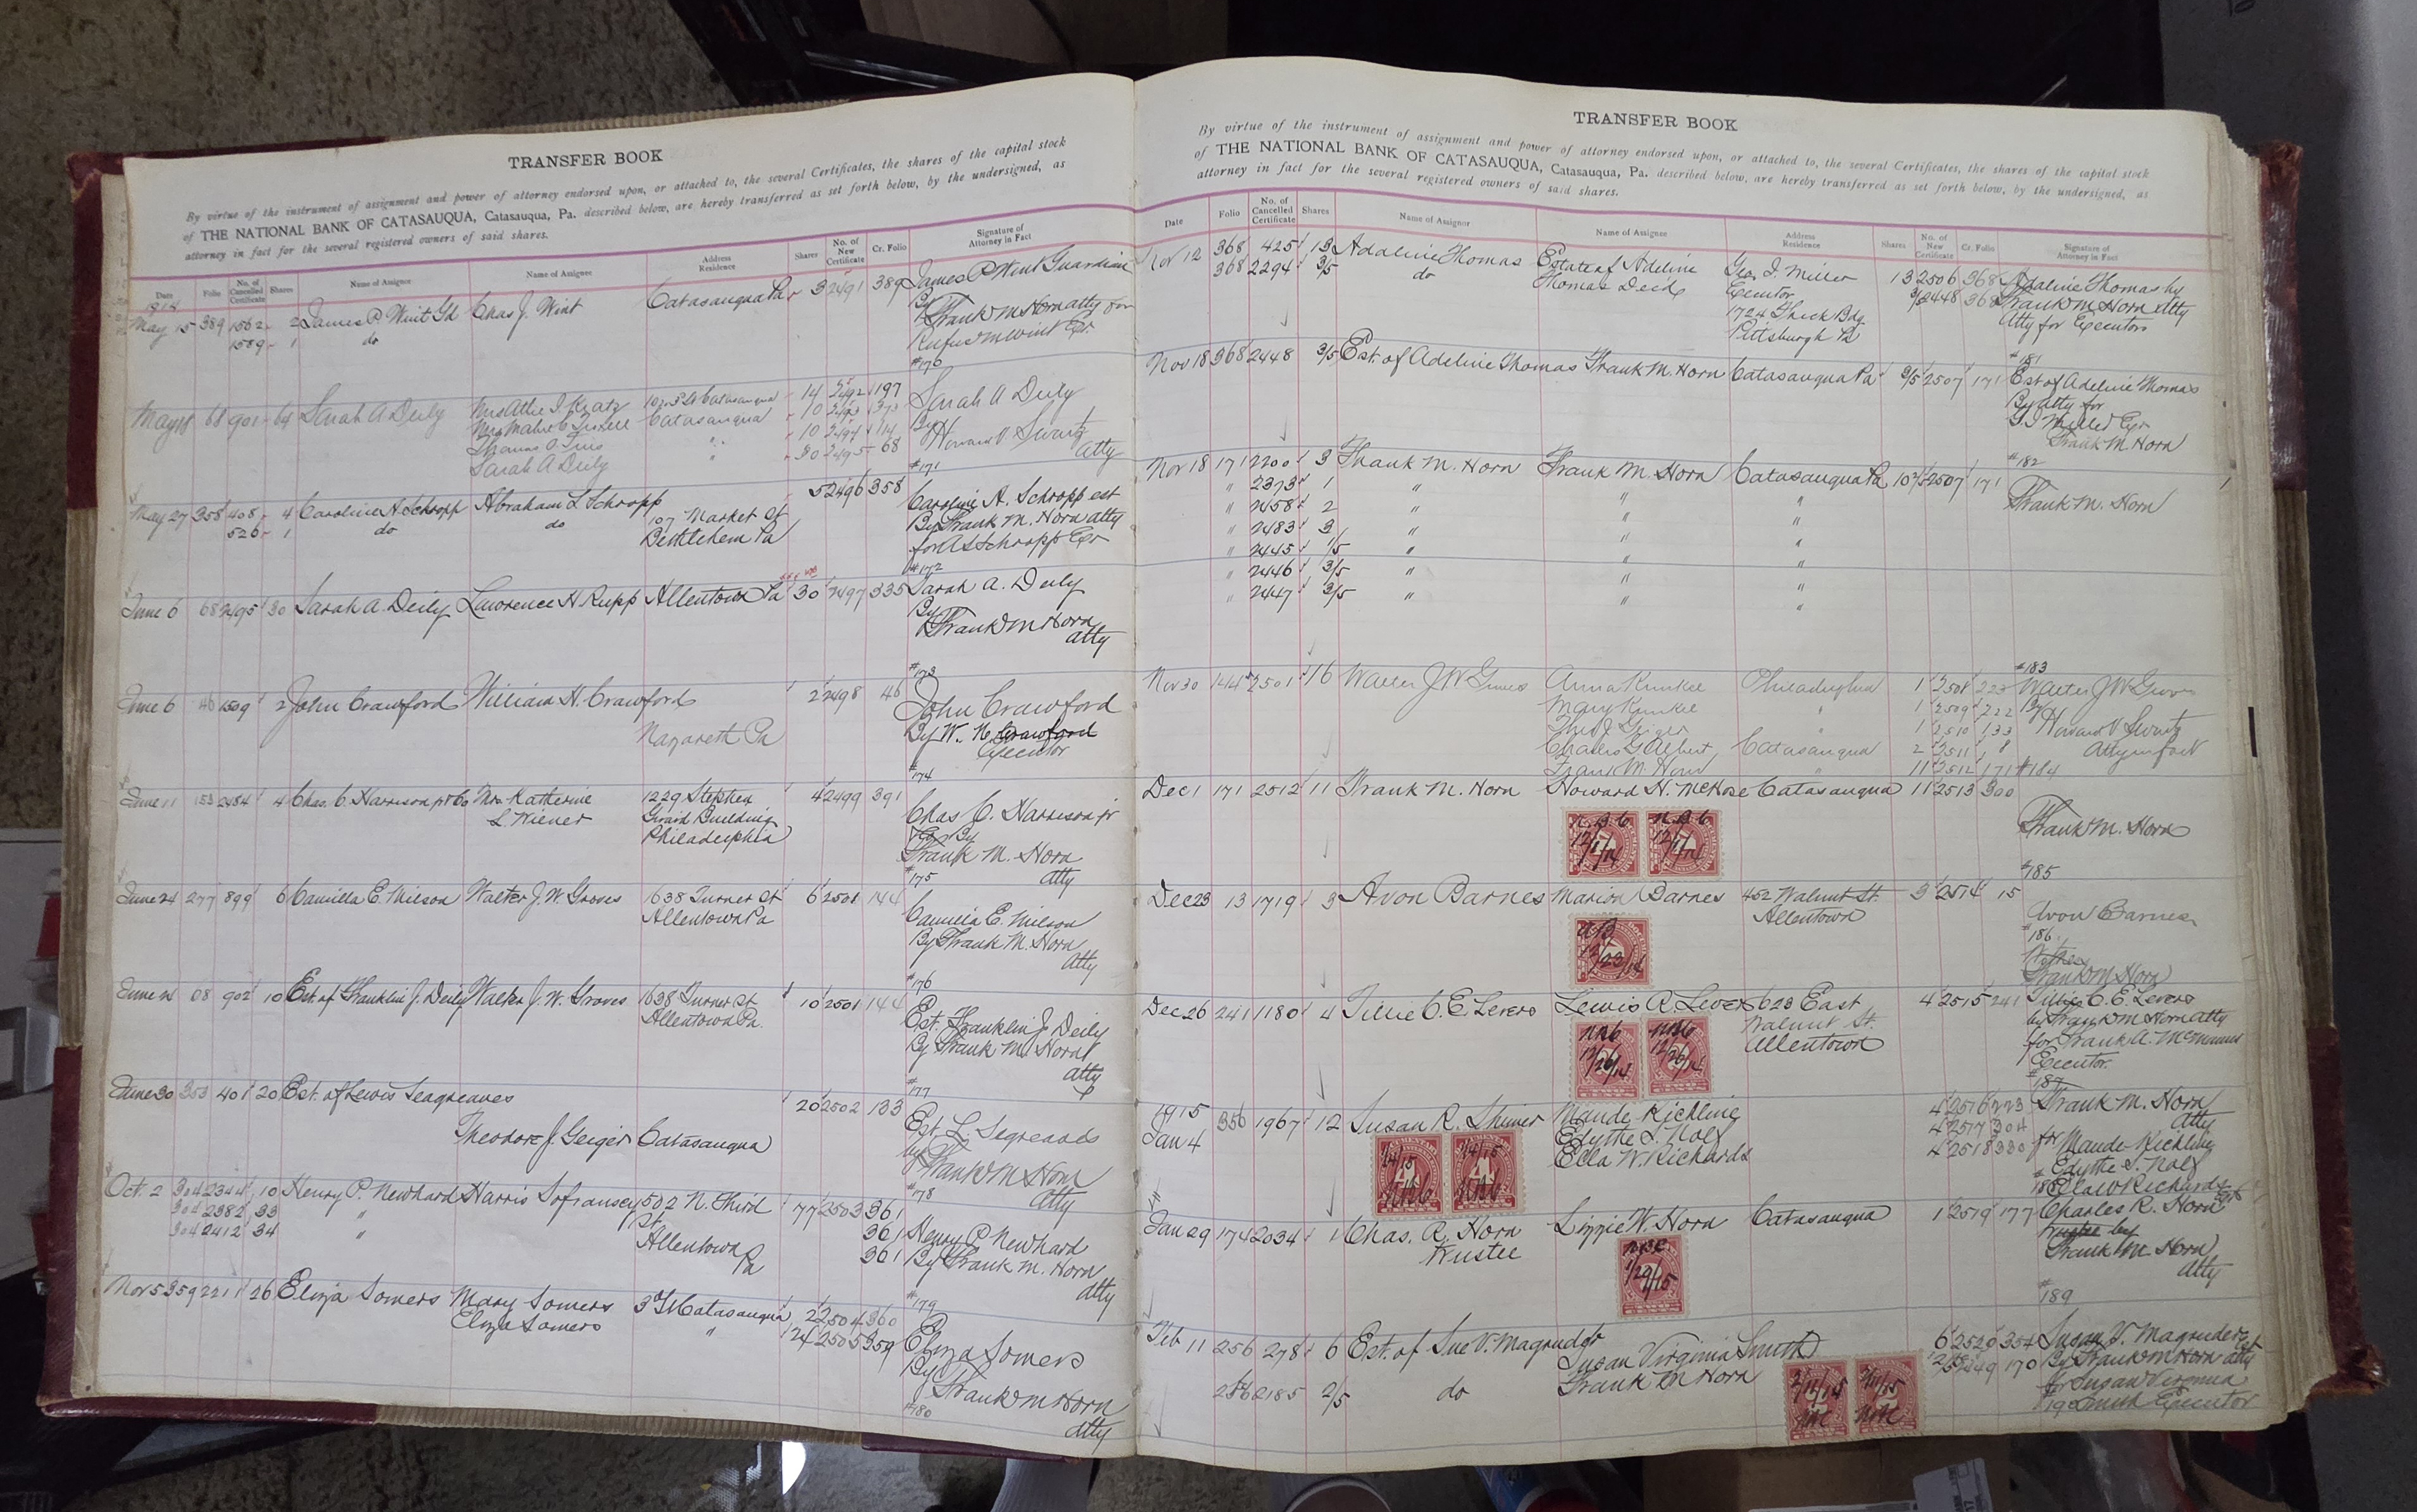 TRANSFER BOOK
By virtue of the instrument of assignment and power of attorney endorsed upon, or attached to, the several Certificates, the shares of the capital stock
of THE NATIONAL BANK OF CATASAUQUA, Catasauqua, Pa. described below, are hereby transferred as set forth below, by the undersigned, as
attorney in fact for the several registered owners of said shares.
Date Folio No. of Cancelled Certificate Shares Name of Assignor Name of Assignee Address Residence Shares No. of New Certificate Cr. Folio Signature of Attorney in Fact
1914
May 15 389 1562 2 James P. Wint Gd Chas J. Wint Catasauqua Pa 3 2491 389 James P Wint Guardian
1589 1 do By Frank M Horn atty for
Rufus M Wint Exr.
#170
May 18 68 901 64 Sarah A Deily Mrs Attie I. Kratz Catasauqua 14 2492 197 Sarah A Deily
Catasauqua 10 2493 By
10 2494 114 Howard V Swartz
Sarah A Deily " 30 2495 68 Atty
#171
May 27 358 408 4 Caroline A. Schropp Abraham L Schropp 107 Market St 5 2496 358 Caroline A. Schropp est
526 1 do do Bethlehem Pa By Frank M. Horn atty
for A L Schropp Exr
#172
June 6 68 2495 30 Sarah A. Deily Lawrence H Rupp Allentown Pa 30 2497 335 Sarah A. Deily
By
Frank M Horn
atty
#173
June 6 46 1509 2 John Crawford William H. Crawford 2 2498 46 John Crawford
Nazareth Pa By W. H. Crawford
Executor
#174
June 11 153 2484 4 Chas. C. Harrison jr Co Mrs Katherine 1229 Stephen 4 2499 391 Chas C. Harrison jr
L. Wiener Girard Building By
Philadelphia Frank M. Horn
#175 Atty
June 24 277 899 6 Camilla E. Milson Walter J. W. Groves 1638 Turner St 6 2501 144 Camilla E. Milson
Allentown Pa By Frank M. Horn
Atty
#176
June 24 68 902 10 Est of Franklin J. Deily Walter J. W. Groves 1638 Turner St 10 2501 144 Est. Franklin J. Deily
Allentown Pa. By Frank M. Horn
Atty
#177
June 30 353 401 20 Est. of Lewis Seagreaves 20 2502 133 Est L. Segreaves
Theodore J. Geiger Catasauqua by Frank M Horn
#178 Atty
Oct. 2 304 2344 10 Henry P. Newhard Harris Sofransey 502 N. Third 77 2503 361
304 2382 33 " St. 361 Henry P Newhard
304 2412 34 " Allentown Pa 361 By Frank M. Horn
#179 Atty
Nov 5 359 2211 26 Eliza Somers Mary Somers 3 St Catasauqua 2 2504 360
Eliza Somers " 24 2505 359 Eliza Somers
By
Frank M Horn
#180 Atty
TRANSFER BOOK
By virtue of the instrument of assignment and power of attorney endorsed upon, or attached to, the several Certificates, the shares of the capital stock
of THE NATIONAL BANK OF CATASAUQUA, Catasauqua, Pa. described below, are hereby transferred as set forth below, by the undersigned, as
attorney in fact for the several registered owners of said shares.
Date Folio No. of Cancelled Certificate Shares Name of Assignor Name of Assignee Address Residence Shares No. of New Certificate Cr. Folio Signature of Attorney in Fact
Nov 12 368 425 13 Adaline Thomas Estate of Adeline Geo. I. Miller 13 2506 368 Adaline Thomas by
368 2294 3/5 do Thomas Decd Executor 3/5 2448 368 Frank M Horn Atty
1724 Frick Bdg Atty for Executors
Pittsburgh Pa
#181
Nov 18 368 2448 3/5 Est. of Adeline Thomas Frank M. Horn Catasauqua Pa 3/5 2507 171 Est of Adeline Thomas
By Atty for
G I Miller Exr
Frank M Horn
#182
Nov 18 171 2200 3 Frank M. Horn Frank M. Horn Catasauqua Pa 2507 171
" 2373 1 " " " Frank M. Horn
" 2458 2 " " "
" 2483 3 " " "
" 2445 1/5 " " "
" 2446 3/5 " " "
" 2447 3/5 " " "
#183
Nov 30 144 2501 16 Walter J W Groves Anna Kunkel Philadelphia 1 2508 223 Walter J W Groves
Mary Kunkel " 1 2509 222 By
Theo J Geiger 1 2510 133 Howard V Swartz
Charles G Albert Catasauqua 2 2511 8 Atty in fact
Frank M. Horn " 11 2512 171 #184
Dec 1 171 2512 11 Frank M. Horn Howard H. McHose Catasauqua 11 2513 300
N.B.C N.B.C
12/1/14 12/1/14 Frank M. Horn
#185
Dec 23 13 1719 3 Avon Barnes Marion Barnes 452 Walnut St. 3 2514 15
Allentown Avon Barnes
12/23/14 #186
Frank M Horn
Dec 26 241 1180 4 Tillie C. E. Levers Lewis R. Levers 623 East 4 2515 241 Tillie C. E. Levers
NBC NBC Walnut St. by Frank M Horn Atty
12/26/14 12/26/14 Allentown for Frank A. McManus
Executor.
#187
1915
Jan 4 356 1967 12 Susan R. Shiner Maude Kichline 4 2516 223 Frank M. Horn
Edythe I. Nolf 4 2517 304 Atty
1/4/15 1/4/15 Ella W. Richards 4 2518 330 for Maude Kichline
NBC NBC Edythe I. Nolf
#188 Ella W Richards
Jan 29 174 2034 1 Chas. R. Horn Lizzie W. Horn Catasauqua 1 2519 177 Charles R. Horn
Trustee NBC trustee by
1/29/15 Frank M. Horn
Atty
#189
Feb 11 256 278 6 Est. of Sue V. Magruder 6 2520 354 Susan V. Magruder Est
Susan Virginia Smith 170 By Frank M Horn atty
256 2185 2/5 do Frank M Horn for Susan Virginia
2/11/15 2/11/15 Smith Executor
NBC NBC